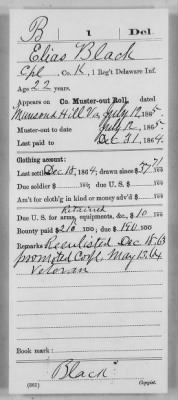 B | 1 | Del.
Elias Black
Cpl., Co. K, 1 Reg't Delaware Inf.
Age 22 years.
Appears on Co. Muster-out Roll, dated
Munsons Hill Va, July 12, 1865.
Muster-out to date July 12, 1865.
Last paid to Oct 31, 1864.
Clothing account:
Last settled Dec 18, 1864; drawn since $ 37 71/100
Due soldier $ /100; due U. S. $ /100
Am't for cloth'g in kind or money adv'd $ /100
Retained
Due U. S. for arms, equipments, &c., $ 10 /100
Bounty paid $ 210 /100; due $ 190 /100
Remarks Reenlisted Dec 18-63
promoted Corpl. May 13.64
Veteran
Book mark:
Black
(361) Copyist.